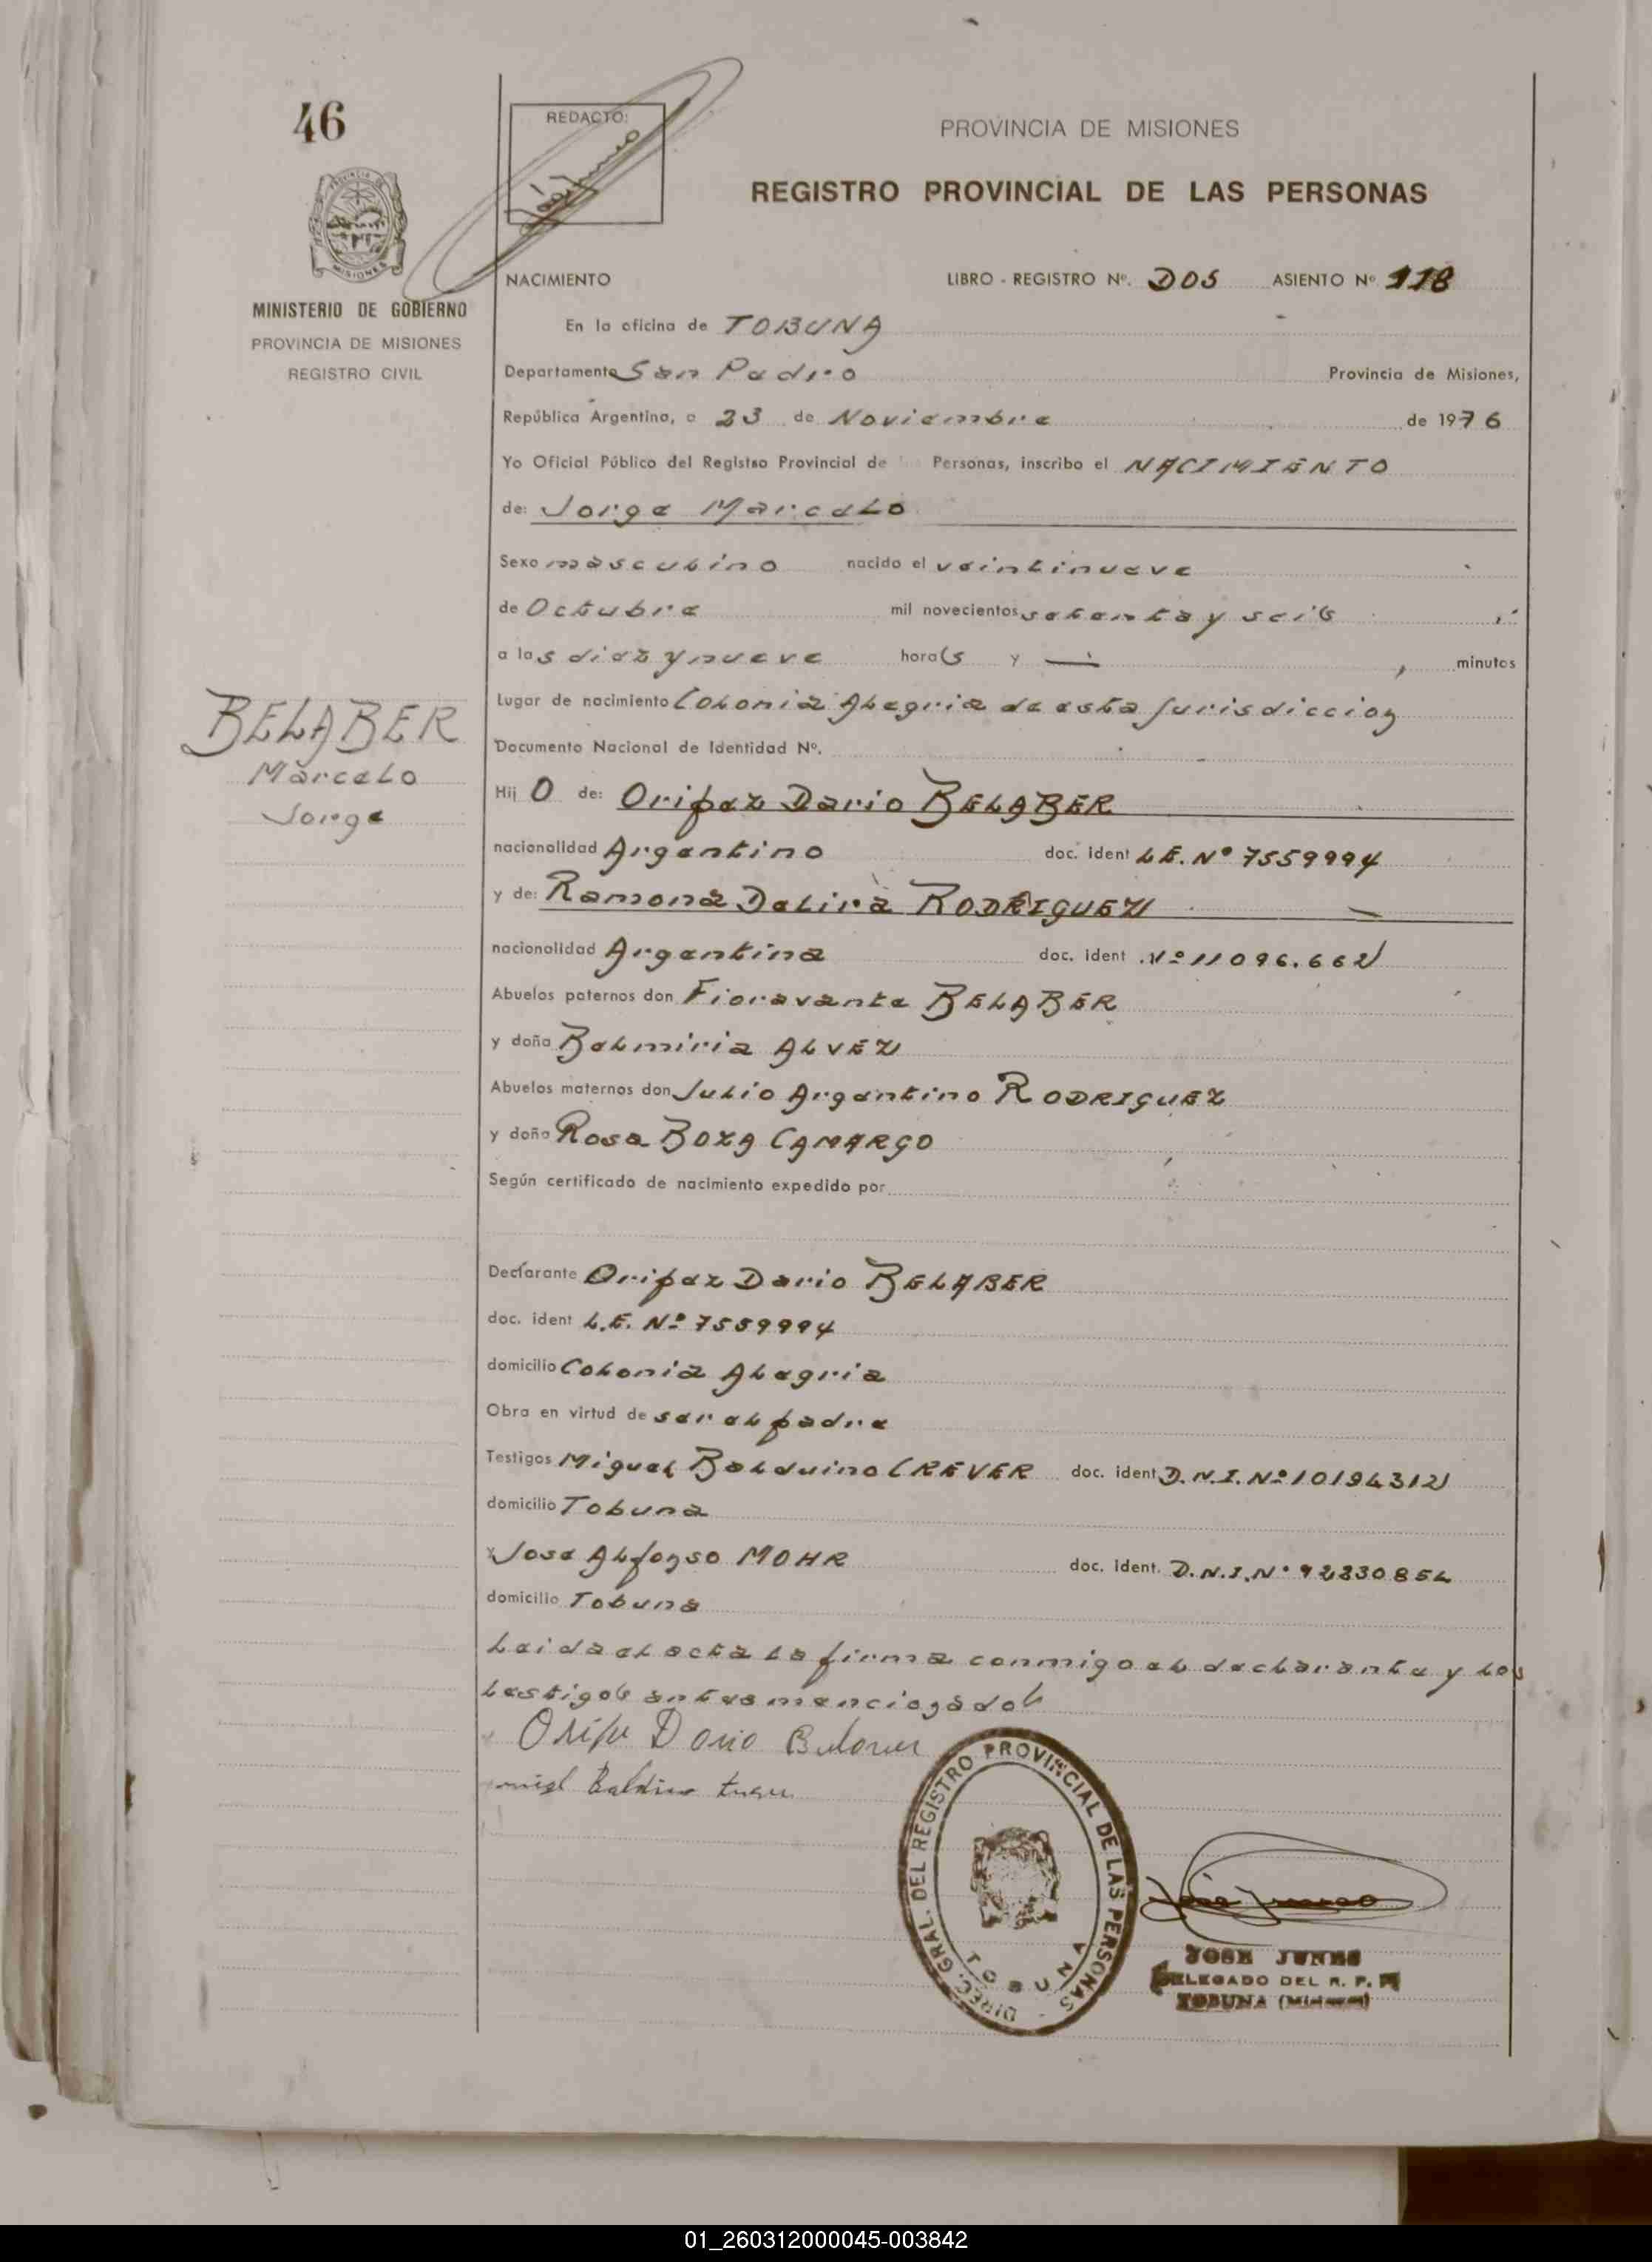 46
REDACTO:
PROVINCIA DE MISIONES
REGISTRO PROVINCIAL DE LAS PERSONAS
MISIONES
MINISTERIO DE GOBIERNO
PROVINCIA DE MISIONES
REGISTRO CIVIL
NACIMIENTO LIBRO - REGISTRO Nº. DOS ASIENTO Nº 118
En la oficina de TOBUNA
Departamento San Pedro Provincia de Misiones,
República Argentina, a 23 de Noviembre de 1976
Yo Oficial Público del Registro Provincial de Personas, inscribo el NACIMIENTO
de: Jorge Marcelo
Sexo masculino nacido el veintinueve
de Octubre mil novecientos setenta y seis
a las diez y nueve hora(s y — minutos
Lugar de nacimiento Colonia Alegria de esta Jurisdiccion
Documento Nacional de Identidad Nº.
BELABER
Marcelo
Jorge
Hij O de: Oripez Dario BELABER
nacionalidad Argentino doc. ident L.E. Nº 7559994
y de: Ramona Delira RODRIGUEZ
nacionalidad Argentina doc. ident Nº 11096.662
Abuelos paternos don Fioravante BELABER
y doña Belmiria ALVEZ
Abuelos maternos don Julio Argentino RODRIGUEZ
y doña Rosa BOZA CAMARGO
Según certificado de nacimiento expedido por
Declarante Oripez Dario BELABER
doc. ident L.E. Nº 7559994
domicilio Colonia Alegria
Obra en virtud de ser el padre
Testigos Miguel Balduino CREVER doc. ident D.N.I. Nº 10194312
domicilio Tobuna
y Jose Alfonso MOHR doc. ident. D.N.I. Nº 92330854
domicilio Tobuna
Leida el acta la firma conmigo el declarante y los
testigos antes mencionados
Dario
DIREC. GRAL. DEL REGISTRO PROVINCIAL DE LAS PERSONAS
TOBUNA
JOSE JUNES
DELEGADO DEL R. P. P.
TOBUNA (Misiones)
01_260312000045-003842